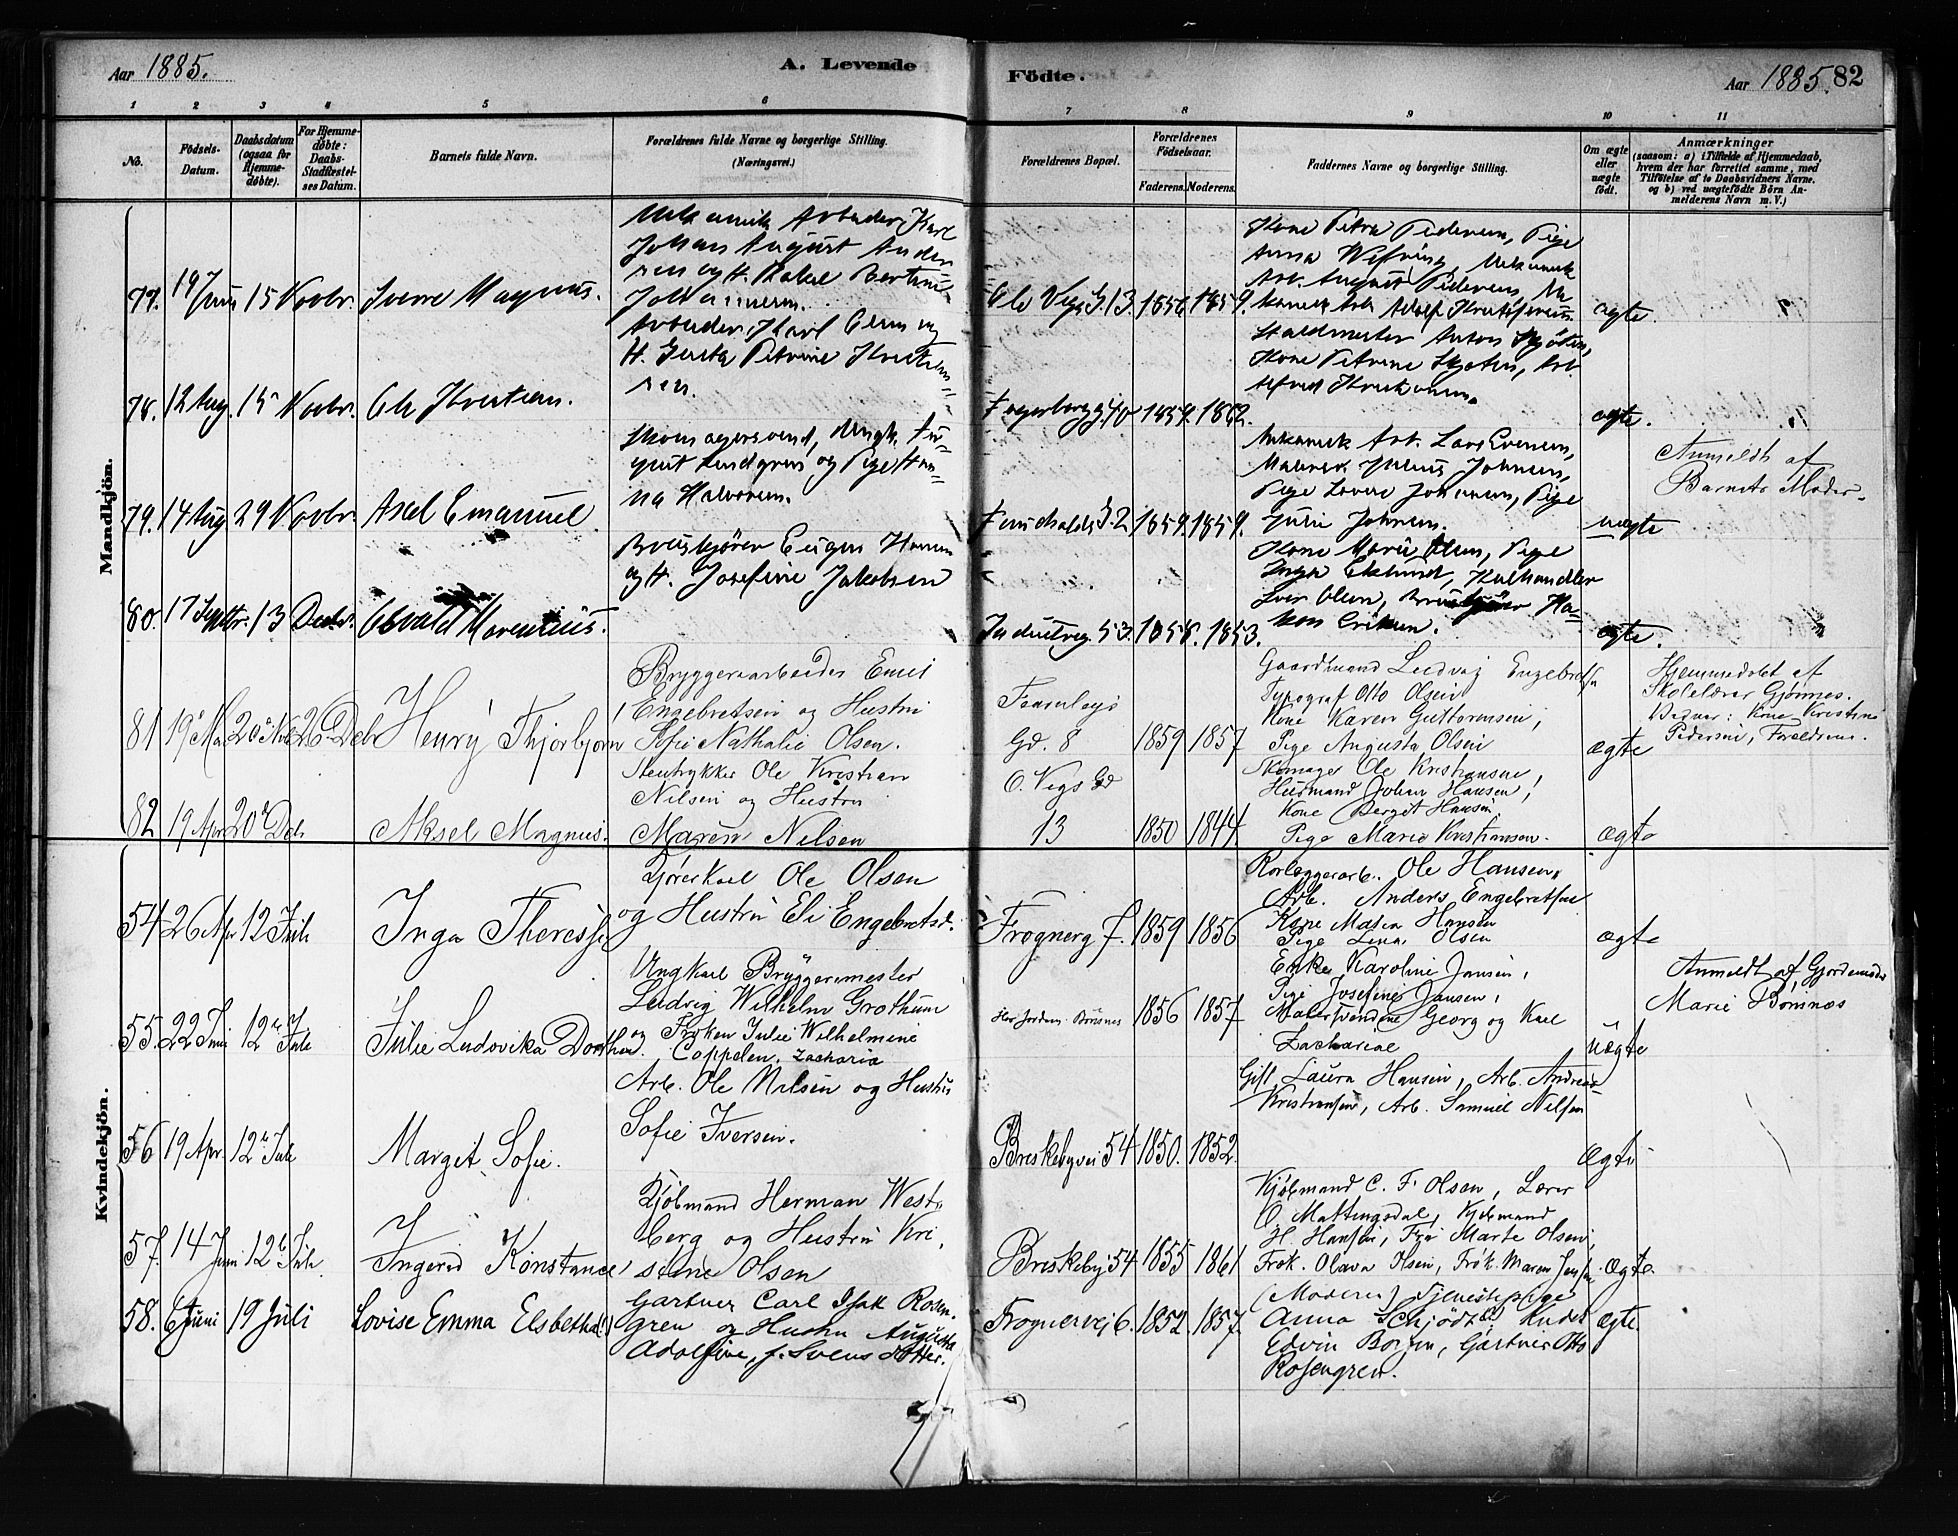 Aar 1885.
A. Levende
Födte.
Aar 1885. 82
1 2 3 4 5 6 7 8 9 10 11
No.
Födsels-Datum.
Daabsdatum (ogsaa for Hjemmedöbte).
For Hjemmedöbte: Daabs-Stadfæstelses Datum.
Barnets fulde Navn.
Forældrenes fulde Navne og borgerlige Stilling. (Næringsvei.)
Forældrenes Bopæl.
Forældrenes Födselsaar.
Faderens. Moderens.
Faddernes Navne og borgerlige Stilling.
Om ægte eller uægte födt.
Anmærkninger
(saasom: a) i Tilfælde af Hjemmedaab,
hvem der har forrettet samme, med
Tilföielse af to Daabsvidners Navne.
og b) ved uægtefödte Börn Anmelderens Navn m. V.)
Mandkjön.
Mekanik Arbeider Karl
Johan August Ander
sen og H.
77. 19 Juni 15 Novbr. Sverre Magnus.
Ole Vigs G. 13. 1856. 1859.
Kone Petra Pedersen, Pige
Anna
Arb. August Pedersen, Me
ægte.
Arbeider, Karl Olsen og
H. Petrine
sen.
78. 12 Aug. 15 Novbr. Ole Kristian.
Fagerborgg 40 1859. 1862.
Staldmester Anton
Kone Petrine
Alfred
ægte.
Skomagersvend, ungk. Au-
gust Lindgren og Pige Han-
na Halvorsen.
79. 14 Aug 29 Novbr. Axel Emanuel.
1859. 1859.
Mekanisk Arb. Lars Evensen,
Maler Julius Johnsen,
Pige Lovise Johnsen, Pige
Julie Johnsen.
uægte
Anmeldt af
Barnets Moder.
Eugen Hansen
og H. Josefine Jakobsen
80. 17 Septbr. 13 Decbr. Osvald
53. 1858. 1853.
Kone Marie Olsen, Pige
Inga Eklund, Kulhandler
Iver Olsen, Ha-
kon Eriksen.
ægte.
Bryggeriarbeider Emil
Engebretsen og Hustru
Sofie Nathalie Olsen.
81 19de Mai 20de 26 Decbr Henry Thjorbjorn
Fearnleys
Gd. 8 1859 1857
Gaardmand Ludvig Engebretsen
Typograf Otto Olsen
Kone Karen Guttormsen,
Pige Augusta Olsen
ægte
Hjemmedöbt af
Skolelærer Gjönnes.
Vidner: Kone Kristine
Pedersen, Forældrene.
Stentrykker Ole Kristian
Nilsen og Hustru
Maren Nilsen
82 19 Apr 20de Decb Aksel Magnus.
O. Vigs Gd
13 1850 1844.
Skomager Ole Kristiansen,
Husmand Johan Hansen,
Kone Bergit Hansen
Pige Marie Kristiansen.
ægte
Kvindekjön.
Kjörerkarl Ole Olsen
og Hustru Eli Engebretsd.
54 26 Apr 12 Juli Inga Theresse
Frognerg 7. 1859 1856
Rorlæggerarb. Ole Hansen,
Arb. Anders Engebretsen
Kone Maren Hansen
Pige Lina Olsen
ægte
Ungkarl Bryggermester
Ludvig Wilhelm Grothum
og Fröken Julie Wilhelmine
Coppelen. Zacharia
55. 22 Juni 12te Jule Julie Ludovika Dorthea.
Hos Jordm. Bonsnes 1856 1857
Enke Karoline Jansen,
Pige Josefine Jansen,
Malersvendene Georg og Karl
Zachariae
uægte
Anmeldt af Gjordemoder
Marie Bonsnæs
Arb. Ole Nilsen og Hustru
Sofie Iversen.
56 19 Apr. 12te Jule Margit Sofie.
Breskebyvei 54 1850. 1852.
Gift Laura Hansen, Arb. Andreas
Kristiansen, Arb. Samuel Nilsen
Ægte
Kjöbmand Herman West-
berg og Hustru Kri-
stine Olsen
57. 14 Juni 12te Jule. Ingerid Konstance
Breskeby 54 1855 1861
Kjöbmand C. F. Olsen, Lærer
O. Mattingsdal, Kjöbmand
H. Hansen, Fru Marte Olsen,
Frök. Olava Olsen, Frök. Maren Jensen.
ægte.
Gartner Carl Isak Rosen-
gren og Hustru Augusta
Adolfine, f. Svens dotter.
58. 6 Juni 19 Juli Lovise Emma Elsbetha(!)
Frognervej 6. 1852 1857.
(Moderen) Tjenestepige
Anna Schjödt, Kudsk
Edvin Borgen, Gartner Otto
Rosengren.
ægte